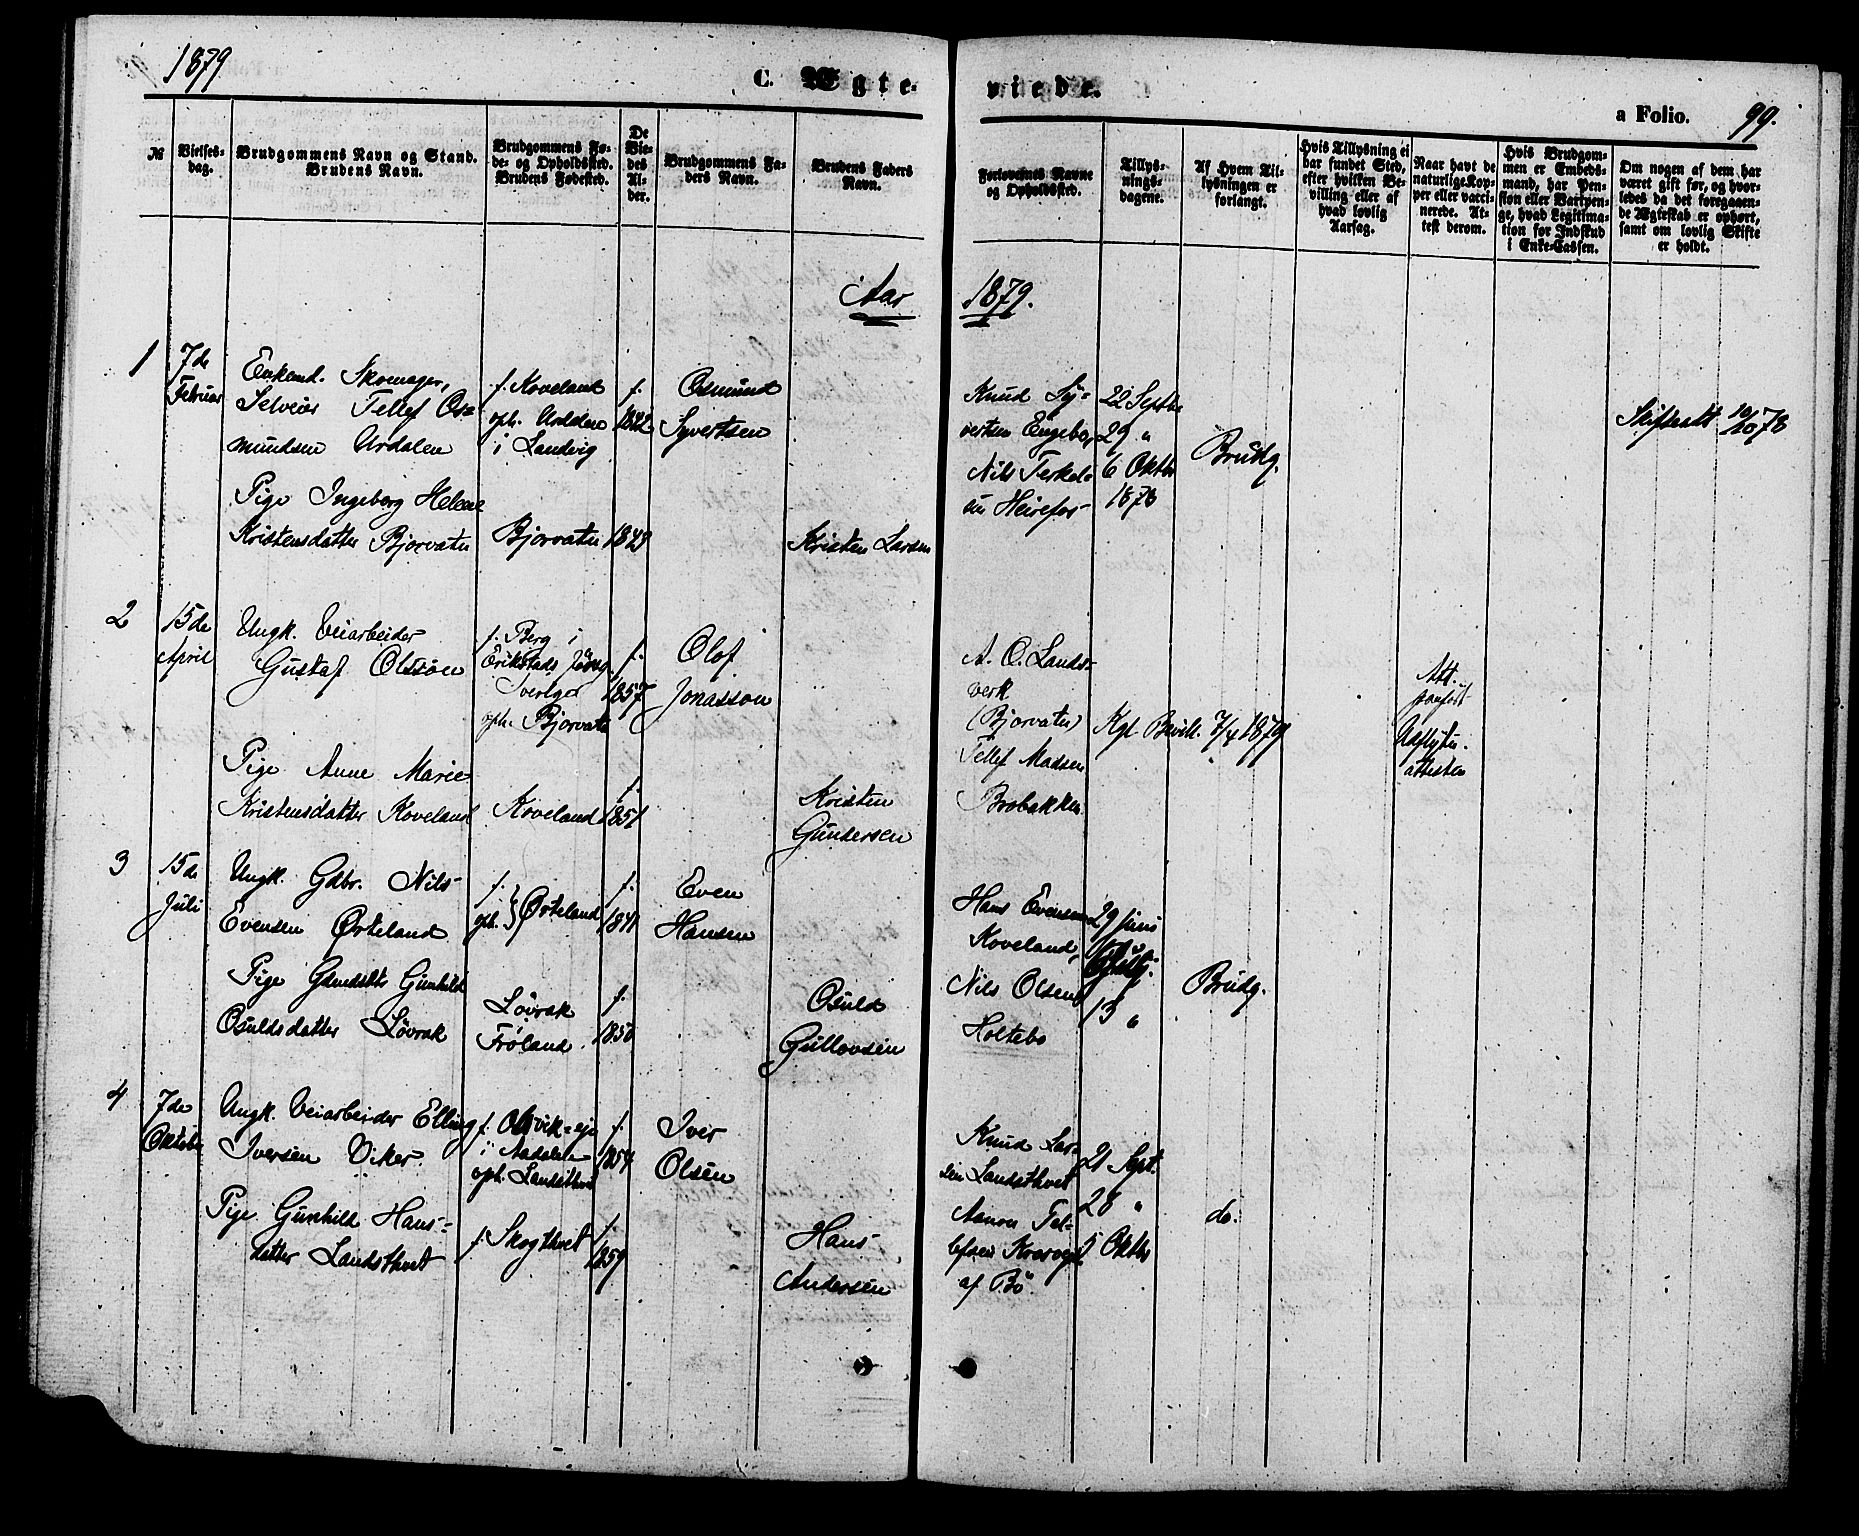 1879
C. Ægteviede.
a Folio. 99.
№
Vielsesdag.
Brudgommens Navn og Stand.
Brudens Navn.
Brudgommens Fode- og Opholdsted.
Brudens Fødested.
De Viedes Alder.
Brudgommens Faders Navn.
Brudens Faders Navn.
Forlovernes Navne og Opholdsted.
Tillysningsdagene.
Af Hvem Tillysningen er forlangt.
Hvis Tillysning ei har fundet Sted, efter hvilken Bevilling eller af hvad lovlig Aarsag.
Naar havt de naturlige Kopper eller vaccinerede. Attest derom.
Hvis Brudgommen er Embedsmand, har Pension eller Vartpenge, hvad Legitimation for Indskud i Enke-Cassen.
Om nogen af dem har været gift før, og hvorledes da det foregaaende Ægteskab er ophørt, samt om lovlig Skifte er holdt.
Aar 1879.
1
7de
Februar
Enkemd. Skomager,
Selveier Tellef Os-
mundsen Urdalen
Pige Ingeborg Helene
Kristensdatter Bjorvatn
f. Koveland
oph. Urdalen
i Landvig
Bjorvatn
f.
1842
1849
Osmund
Syvertsen
Kristen Larsen
Knud Sy-
vertsen Engebo,
Nils Terkel-
sen Heirefos
22 Septbr
29 "
6 Oktbr
1878
Brudg.
Skifteatt 10/10 78
2
15de
April
Ungk. Veiarbeider
Gustaf Olsson
Pige Anne Marie
Kristensdatter Koveland
f. Berg i
Erikstads
Sverige
oph. Bjorvatn
Koveland
f.
1857
f.
1851
Olof
Jonasson
Kristen
Gundersen
A. O. Lands-
verk
(Bjorvatn)
Tellef Madsen
Brobakken
Kgl Bevill. 7/4 1879
Att.
Udflytn.
attesten
3
15de
Juli
Ungk. Gdbr. Nils
Evensen Ørteland
Pige Gdmdatts Gunhild
Osuldsdatter Løvrak
f.
oph. } Ørteland
Løvrak
Froland
f.
1841
f.
1850
Even
Hansen
Osuld
Gullovsen
Hans Evensen
Koveland,
Nils Olsen
Holtebo
29 Juni
13 "
Brudg.
4
7de
Oktober
Ungk. Veiarbeider Elling
Iversen Viker
Pige Gunhild Hans-
datter Landsthvet
f. Olsvik-eje
i Aadalen
oph. Landsthvet
f. Skogthvet
f.
1854
f.
1859
Iver
Olsen
Hans
Andersen
Knud Lar-
sen Landsthvet
Aanon Tel-
lefsen
af Bø.
21 Sept.
28 "
5 Oktbr
do.